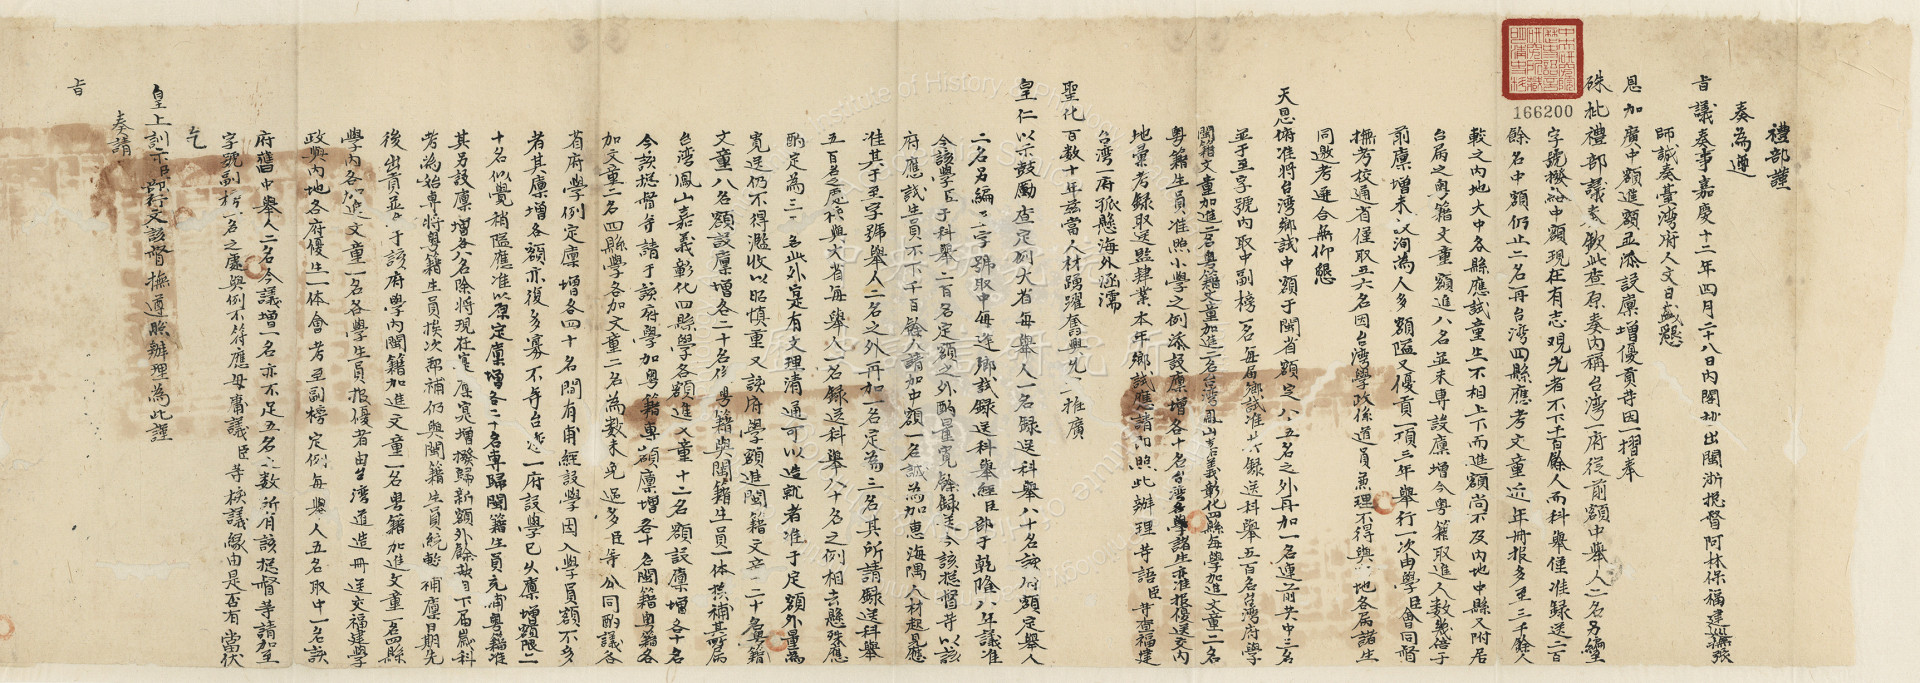 禮部謹
奏為遵
旨議奏事嘉慶十二年四月二十八日內閣抄出閩浙總督阿林保福建撫張
師誠奏臺灣府人文日盛懇
恩加廣中額進額並添設廩增優貢等因一摺奉
硃批禮部議奏欽此查原奏內稱台湾一府從前額中舉人二名另編至
字號撥給中額現在有志观光者不下千百餘人而科舉僅准錄送二百
餘名中額仍止二名再台湾四縣應考文童近年冊报多至三千餘人
較之內地大中各縣應試童生不相上下而進額尚不及內地中縣又附居
台屬之粵籍文童額進八名並未專設廩增今粵籍取進人数幾倍于
前廩增未設洵為人多額隘又優貢一項三年舉行一次由學臣會同督
撫考校通省僅取五六名因台湾學政係道員兼理不得與內地各屬諸生
同邀考選合無仰懇
天恩俯准將台湾鄉試中額于閩省額定八十五名之外再加一名連前共中三名
並于至字號內取中副榜一名每屆鄉試准其錄送科舉五百名台湾府學
閩籍文童加進二名粵籍文童加進一名台湾鳳山嘉義彰化四縣每學加進文童二名
粵籍生員准照小學之例添設廩增各十名台湾各學諸生亦准报優送交內
地彙考錄取送監肄業本年鄉試應請即照此辦理等語臣等查福建
台湾一府孤懸海外涵濡
聖化百数十年茲當人材踴躍舊興允宜推廣
皇仁以示鼓勵查定例大省每舉人一名錄送科舉八十名該府額定舉人
二名名編至字號取中每逢鄉試錄送科舉經臣部于乾隆八年議准
令該學臣于科舉二百名定額之外酌量寬餘錄送今該總督等以該
府應試生員不下千百餘人請加中額一名誠為加惠海隅人材起見應
准其于至字號舉人二名之外再加一名定為三名其所請錄送科舉
五百名之處核與大省每舉人一名錄送科舉八十名之例相去懸殊應
酌定為三百名此外寔有文理清通可以造就者准于定額外量為
寬送仍不得濫收以昭慎重又該府學額進閩籍文童二十名粵籍
文童八名額設廩增各二十名係粵籍與閩籍生員一体核補其所屬
台湾鳳山嘉義彰化四縣學各額進文童十二名額設廩增各十名
今該總督等請于該府學加粵籍專額廩增各十名閩籍粵籍各
加文童二名四縣學各加文童二名為数未免過多臣等公同酌議各
省府學例定廩增各四十名間有甫經設學因入學員額不多
者其廩增各額亦復多寡不等台湾一府設學已久廩增額限二
十名似覺稍隘應准以原定廩增各二十名專歸閩籍生員充補粵籍准
其另設廩增各八名除將現在寔廩寔增撥歸新額外餘缺目下屆歲科
考為始專將粵籍生員挨次幫補仍與閩籍生員統較補廩日期先
後出貢並于該府學內閩籍加進文童一名粵籍加進文童一名四縣
學內各加進文童一名各學生員报優者由台湾道造冊送交福建學
政與內地各府優生一体會考至副榜定例每舉人五名取中一名該
府舊中舉人二名今議增一名亦不足五名之数所有該總督等請加至
字號副榜一名之處與例不符應毋庸議臣等核議緣由是否有當伏
乞
皇上訓示臣部行文該督撫遵照辦理為此謹
奏請
旨
166200